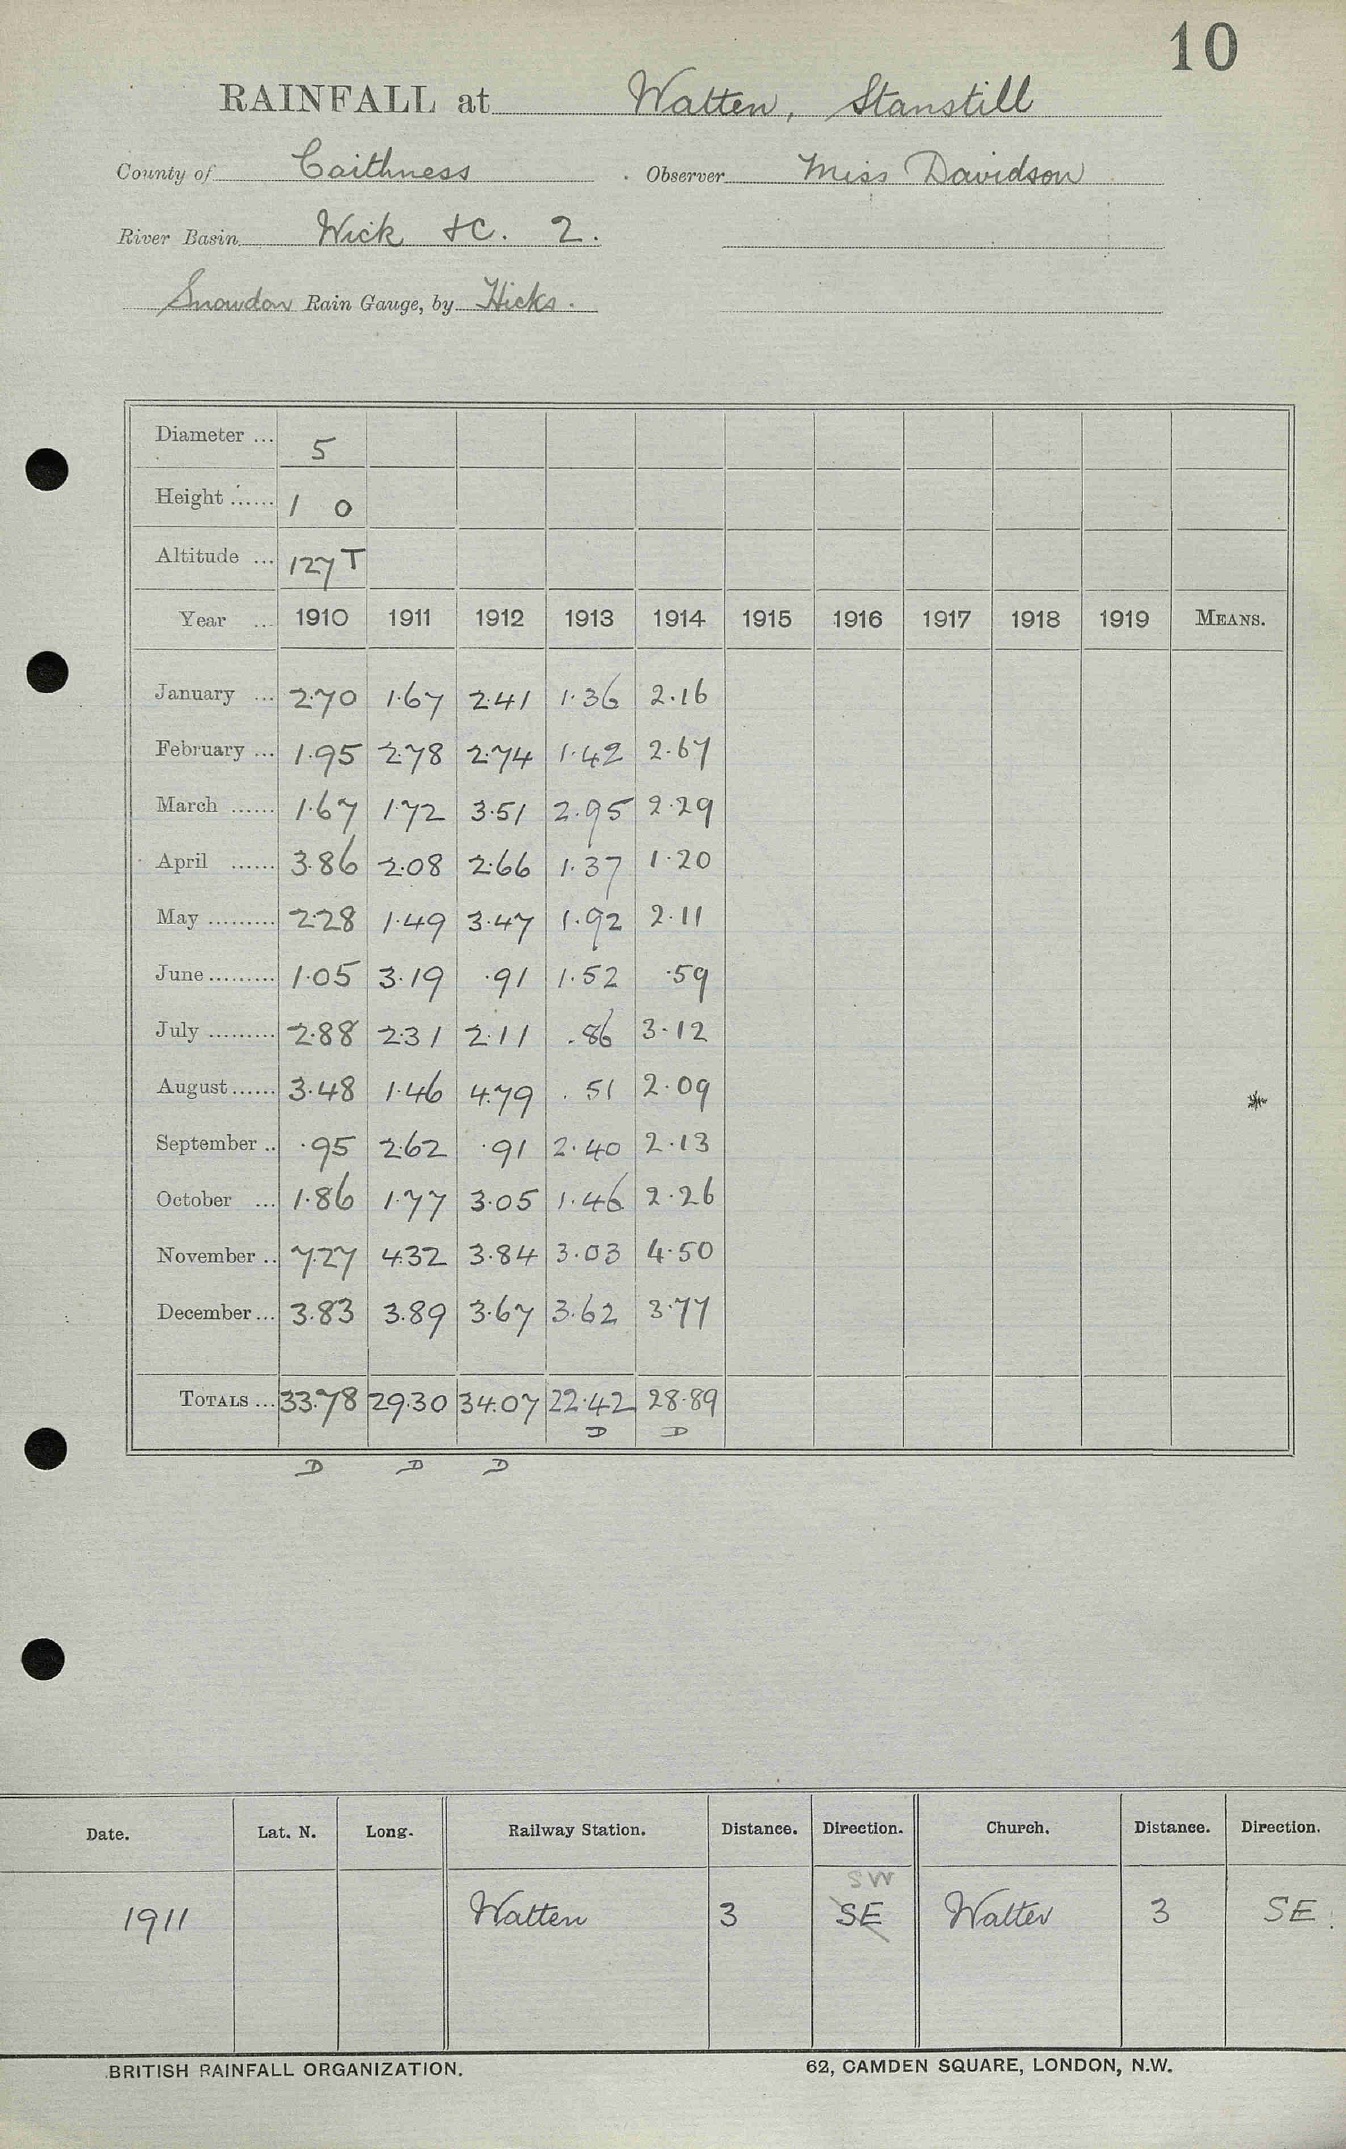 10
RAINFALL at Watten, Stanstill
County of Caithness . Observer Miss Davidson
River Basin Wick &C. 2.
Snowdon Rain Gauge, by Hicks.
Diameter ... 5
Height ...... 1 0
Altitude ... 127 T
Year ... 1910 1911 1912 1913 1914 1915 1916 1917 1918 1919 MEANS.
January ... 2.70 1.67 2.41 1.36 2.16
February ... 1.95 2.78 2.74 1.42 2.67
March ...... 1.67 1.72 3.51 2.95 2.29
April ...... 3.86 2.08 2.66 1.37 1.20
May ......... 2.28 1.49 3.47 1.92 2.11
June ......... 1.05 3.19 .91 1.52 .59
July ......... 2.88 2.31 2.11 .86 3.12
August ...... 3.48 1.46 4.79 .51 2.09
September .. .95 2.62 .91 2.40 2.13
October ... 1.86 1.77 3.05 1.46 2.26
November .. 7.27 4.32 3.84 3.03 4.50
December ... 3.83 3.89 3.67 3.62 3.77
TOTALS ... 33.78 29.30 34.07 22.42 28.89
D D
D D D
Date. Lat. N. Long. Railway Station. Distance. Direction. Church. Distance. Direction.
SW
1911 Watten 3 SE Watten 3 SE.
BRITISH RAINFALL ORGANIZATION. 62, CAMDEN SQUARE, LONDON, N.W.